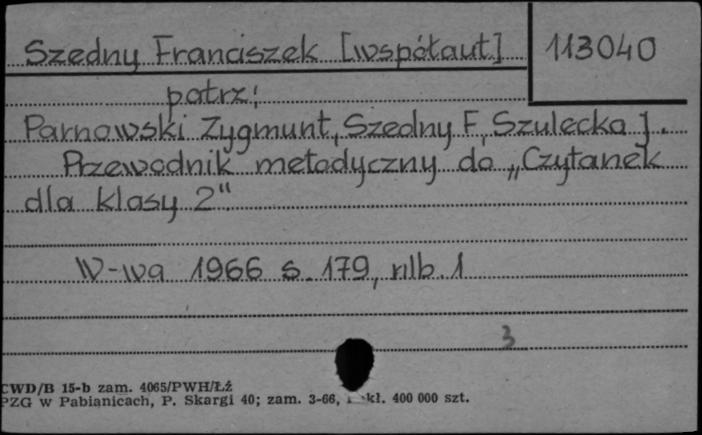 Szedny Franciszek [współaut.] 113040
patrz:
Parnowski Zygmunt, Szedny F, Szulecka J.
Przewodnik metodyczny do „Czytanek
dla klasy 2"
W-wa 1966 s. 179, nlb. 1
3
CWD/B 15-b zam. 4065/PWH/Łź
PZG w Pabianicach, P. Skargi 40; zam. 3-66, kł. 400 000 szt.